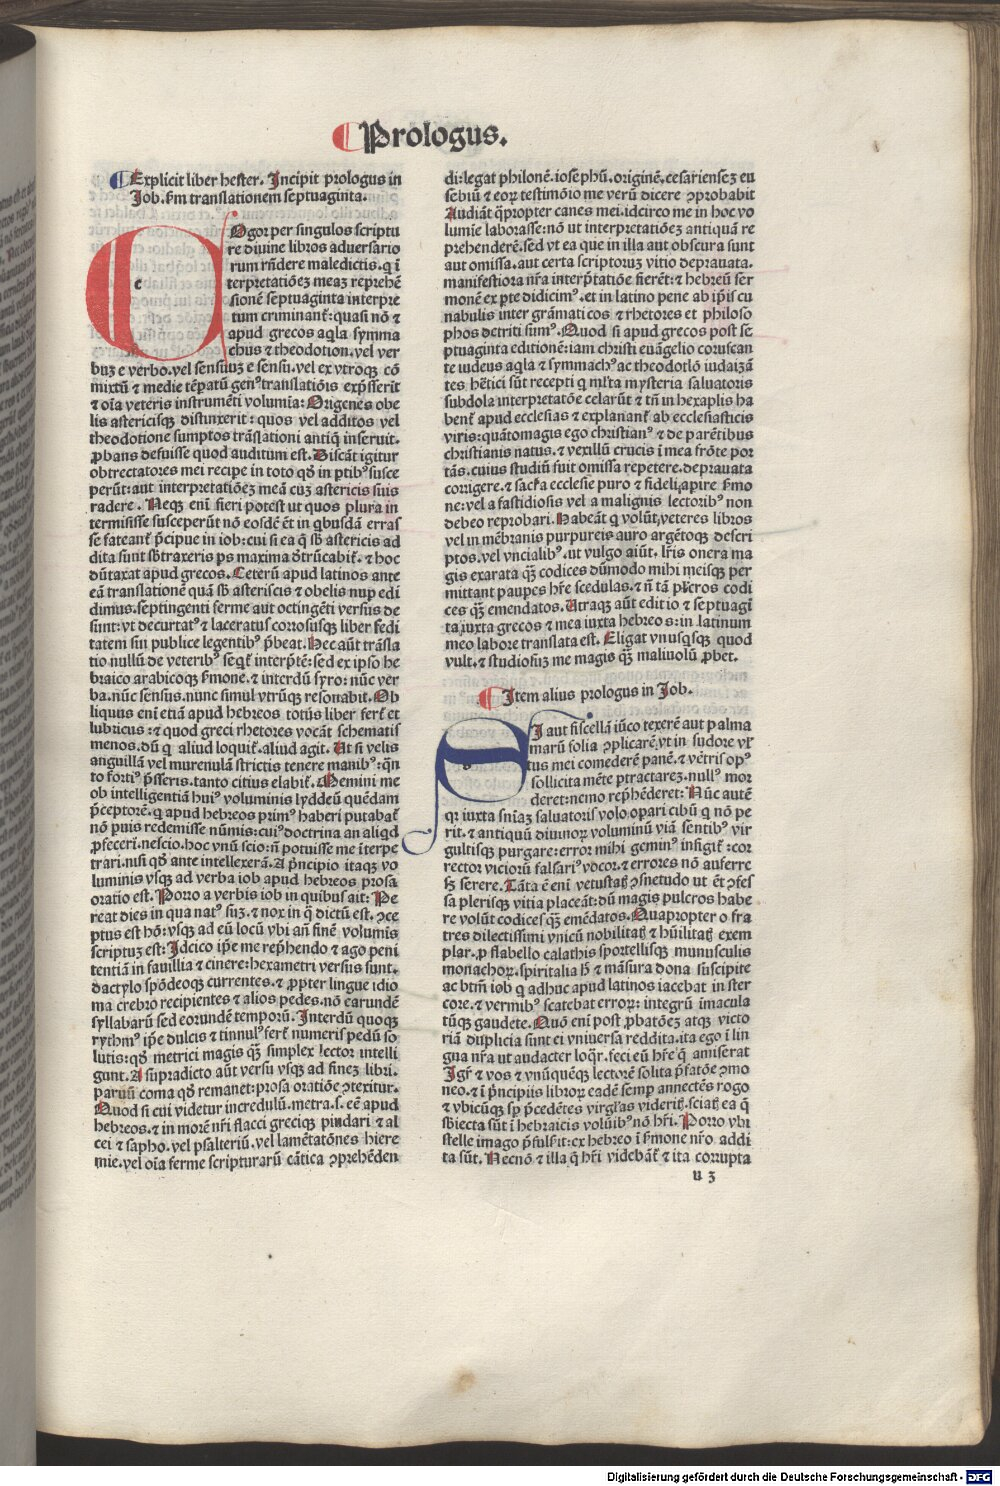 Prologus.
Explicit liber hester. Incipit prologus in
Job. ẜm translationem septuaginta.
COgor per singulos scriptu
re diuine libros aduersario
rum rñdere maledictis. q̇ ĩ
terpretatiõeȝ meaȝ reprehẽ
sionẽ septuaginta interpre
tum criminant̃: quasi nõ ⁊
apud grecos aq̇la symma
chus ⁊ theodotion. vel ver
buȝ e verbo. vel sensuuȝ e sensu. vel ex vtroqȝ cõ
mixtũ ⁊ medie tẽpatũ genꝰ translatiõis exp̃sserĩt
⁊ oĩa veteris instrumẽti volumĩa: Origenes obe
lis astericisqȝ distinxerit: quos vel additos vel
theodotione sumptos trãslationi antiq̃ inseruit.
ꝓbans defuisse quod auditum est. Discãt igitur
obtrectatores mei recipe in toto qð in ptibꝰ susce
perũt: aut interpretatiõeȝ meã cuȝ astericis suis
radere. Neqȝ enĩ fieri potest ut quos plura in
termisisse susceperũt nõ eosdẽ ẽt in q̇busdã erras
se fateant̃ p̃cipue in iob: cui si ea q̃ sb̃ astericis ad
dita sunt sb̃traxeris ps maxima ð̃trũcabit̃. ⁊ hoc
dũtaxat apud grecos. Ceterũ apud latinos ante
eã translationẽ quã sb̃ asteriscis ⁊ obelis nup edi
dimus. septingenti ferme aut octingẽti versus de
sunt: vt decurtatꝰ ⁊ laceratus corrosusqȝ liber fedi
tatem sui publice legentibꝰ p̃beat. Hec aũt trãsla
tio nullũ de veteribꝰ seq̇t̃ interp̃tẽ: sed ex ipso he
braico arabicoqȝ ẜmone. ⁊ interdũ syro: nũc ver
ba. nũc sensus. nunc simul vtrũqȝ resonabit. Ob
liquus enĩ etiã apud hebreos totus liber fert̃ et
lubricus: ⁊ quod greci rhetores vocãt schematis
menos. dũ q̇ aliud loquit̃. aliud agit. Ut si velis
anguillã vel murenulã strictis tenere manibꝰ: q̃n
to fortiꝰ p̃sseris. tanto citius elabit̃. Memini me
ob intelligentiã huiꝰ voluminis lyddeũ quẽdam
p̃ceptorẽ. q̇ apud hebreos primꝰ haberi putabat̃
nõ puis redemisse nũmis: cuiꝰ doctrina an aliqd
ꝓfeceri. nescio. hoc vnũ scio: ñ potuisse me ĩterpe
trari. nisi qð ante intellexerã. A p̃ncipio itaqȝ vo
luminis vsqȝ ad verba iob apud hebreos prosa
oratio est. Porro a verbis iob in quibus ait: Pe
reat dies in qua natꝰ suȝ. ⁊ nox in q̃ dictũ est. ɔce
ptus est hõ: vsqȝ ad eũ locũ vbi añ finẽ volumis
scriptuȝ est: Idcico ip̃e me rep̃hendo ⁊ ago peni
tentiã in fauillia ⁊ cinere: hexametri versus sunt.
dactylo spõdeoqȝ currentes. ⁊ ꝓpter lingue idio
ma crebro recipientes ⁊ alios pedes. nõ earundẽ
syllabarũ sed eorundẽ temporũ. Interdũ quoqȝ
rythmꝰ ip̃e dulcis ⁊ tinnulꝰ fert̃ numeris pedũ so
lutis: qð metrici magis q̃ȝ simplex lector intelli
gunt. A sup̃radicto aũt versu vsqȝ ad fineȝ libri.
paruũ coma qð remanet: prosa oratiõe ɔtexitur.
Quod si cui videtur incredulũ. metra. s. eẽ apud
hebreos. ⁊ in morẽ nr̃i flacci greciqȝ pindari ⁊ al
cei ⁊ sapho. vel psalteriũ. vel lamẽtatõnes hiere
mie. vel oĩa ferme scripturarũ cãtica ɔprehẽden
di: legat philonẽ. iosephũ. originẽ. cesarienseȝ eu
sebiũ ⁊ eoꝝ testimõio me verũ dicere ɔprobabit
Audiãt q̃propter canes mei. idcirco me in hoc vo
lumie laborasse: nõ ut interpretatiõeȝ antiquã re
prehenderẽ. sed vt ea que in illa aut obscura sunt
aut omissa. aut certa scriptoruȝ vitio deprauata.
manifestiora nr̃a interp̃tatiõe fierẽt: ⁊ hebreũ ser
monẽ ex pte didicimꝰ. et in latino pene ab ip̃is cu
nabulis inter grãmaticos ⁊ rhetores et philoso
phos detriti sumꝰ. Quod si apud grecos post se
ptuaginta editionẽ: iam christi euãgelio coruscan
te iudeus aq̇la ⁊ symmachꝰ ac theodotiõ iudaizã
tes hẽtici sũt recepti q̇ ml̃ta mysteria saluatoris
subdola interpretatõe celarũt ⁊ tñ in hexaplis ha
bent̃ apud ecclesias ⁊ explanant̃ ab ecclesiasticis
viris: quãtomagis ego christianꝰ ⁊ de parẽtibus
christianis natus. ⁊ vexillũ crucis ĩ mea frõte por
tãs. cuius studiũ fuit omissa repetere. deprauata
corrigere. ⁊ sacr̃a ecclesie puro ⁊ fideli apire ẜmo
ne: vel a fastidiosis vel a malignis lectoribꝰ non
debeo reprobari. Habeãt q̇ volũt. veteres libros
vel in mẽbranis purpureis auro argẽtoqȝ descri
ptos. vel vncialibꝰ. ut vulgo aiũt. lr̃is onera ma
gis exarata q̃ȝ codices dũmodo mihi meisqȝ per
mittant paupes hr̃e scedulas. ⁊ ñ tã plc̃ros codi
ces q̃ȝ emendatos. Utraqȝ aũt editio ⁊ septuagĩ
ta iuxta grecos ⁊ mea iuxta hebreos: in latinum
meo labore translata est. Eligat vnusqȝsqȝ quod
vult. ⁊ studiosuȝ me magis q̃ȝ maliuolũ ꝓbet.
Item alius prologus in Job.
SI aut fiscellã iũco texerẽ aut palma
marũ folia ɔplicarẽ. vt in sudore vl̃
tus mei comederẽ panẽ. ⁊ vẽtris opꝰ
sollicita mẽte ptractareȝ. nullꝰ mor
deret: nemo rep̃hẽderet: Nũc autẽ
qꝛ iuxta sñiaȝ saluatoris volo opari cibũ q̇ nõ pe
rit. ⁊ antiquũ diuinoꝝ voluminũ viã sentibꝰ vir
gultisqȝ purgare: error mihi geminꝰ infigit̃: cor
rector viciorũ falsariꝰ vocor. ⁊ errores nõ auferre
sȝ serere. Tãta ẽ enĩ vetustatꝭ ɔsuetudo ut ẽt ɔfes
sa plerisqȝ vitia placeãt: dũ magis pulcros habe
re volũt codices q̃ȝ emẽdatos. Quapropter o fra
tres dilectissimi vnicũ nobilitatꝭ ⁊ hũilitatꝭ exem
plar. ꝓ flabello calathis sportellisqȝ munusculis
monachoꝝ. spiritalia hꝭ ⁊ mãsura dona suscipite
ac btm̃ iob q̇ adhuc apud latinos iacebat in ster
core. ⁊ vermibꝰ scatebat erroꝝ: integrũ imacula
tũqȝ gaudete. Quõ enĩ post ꝓbatõeȝ atqȝ victo
riã dupplicia sunt ei vniuersa reddita. ita ego ĩ lin
gua nr̃a ut audacter loq̇r. feci eũ hr̃e q̃ amiserat
Igr̃ ⁊ vos ⁊ vnũquẽqȝ lectorẽ solita p̃fatõe ɔmo
neo. ⁊ ĩ p̃ncipiis libroꝝ eadẽ semp annectẽs rogo
⁊ vbicũqȝ sp̱ p̃cedẽtes virgl̃as videritꝭ. sciatꝭ ea q̃
sb̃iecta sũt ĩ hebraicis volũibꝰ nõ hr̃i. Porro vbi
stelle imago p̃fulẜit: ex hebreo ĩ ẜmone nr̃o addi
ta sũt. Necnõ ⁊ illa q̃ hr̃i videbãt̃ ⁊ ita corrupta
u 3
Digitalisierung gefördert durch die Deutsche Forschungsgemeinschaft - DFG